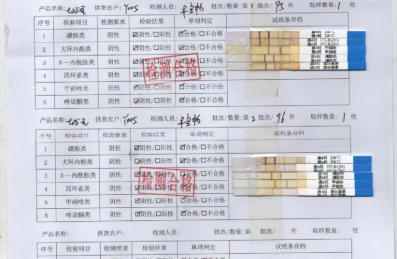 产品名称: 供货农户: 7005 检测人员: 批次/数量: 第 1 批次/ 95 件 取样数量: 1 枚
序号 检验项目 检测要求 检验结果 单项判定 试纸条存档
1 磺胺类 阴性 ☑阴性/☐阳性 ☑合格/☐不合格
2 大环内酯类 阴性 ☑阴性/☐阳性 ☑合格/☐不合格
3 β-内酰胺类 阴性 ☑阴性/☐阳性 ☑合格/☐不合格
4 四环素类 阴性 ☑阴性/☐阳性 ☑合格/☐不合格
5 甲硝唑类 阴性 ☑阴性/☐阳性 ☑合格/☐不合格
6 喹诺酮类 阴性 ☑阴性/☐阳性 ☑合格/☐不合格
检测合格
产品名称: 供货农户: 7005 检测人员: 批次/数量: 第 2 批次/ 96 件 取样数量: 1 枚
序号 检验项目 检测要求 检验结果 单项判定 试纸条存档
1 磺胺类 阴性 ☑阴性/☐阳性 ☑合格/☐不合格
2 大环内酯类 阴性 ☑阴性/☐阳性 ☑合格/☐不合格
3 β-内酰胺类 阴性 ☑阴性/☐阳性 ☑合格/☐不合格
4 四环素类 阴性 ☑阴性/☐阳性 ☑合格/☐不合格
5 甲硝唑类 阴性 ☑阴性/☐阳性 ☑合格/☐不合格
6 喹诺酮类 阴性 ☑阴性/☐阳性 ☑合格/☐不合格
检测合格
产品名称: 供货农户: 检测人员: 批次/数量: 第 批次/ 件 取样数量: 枚
序号 检验项目 检测要求 检验结果 单项判定 试纸条存档